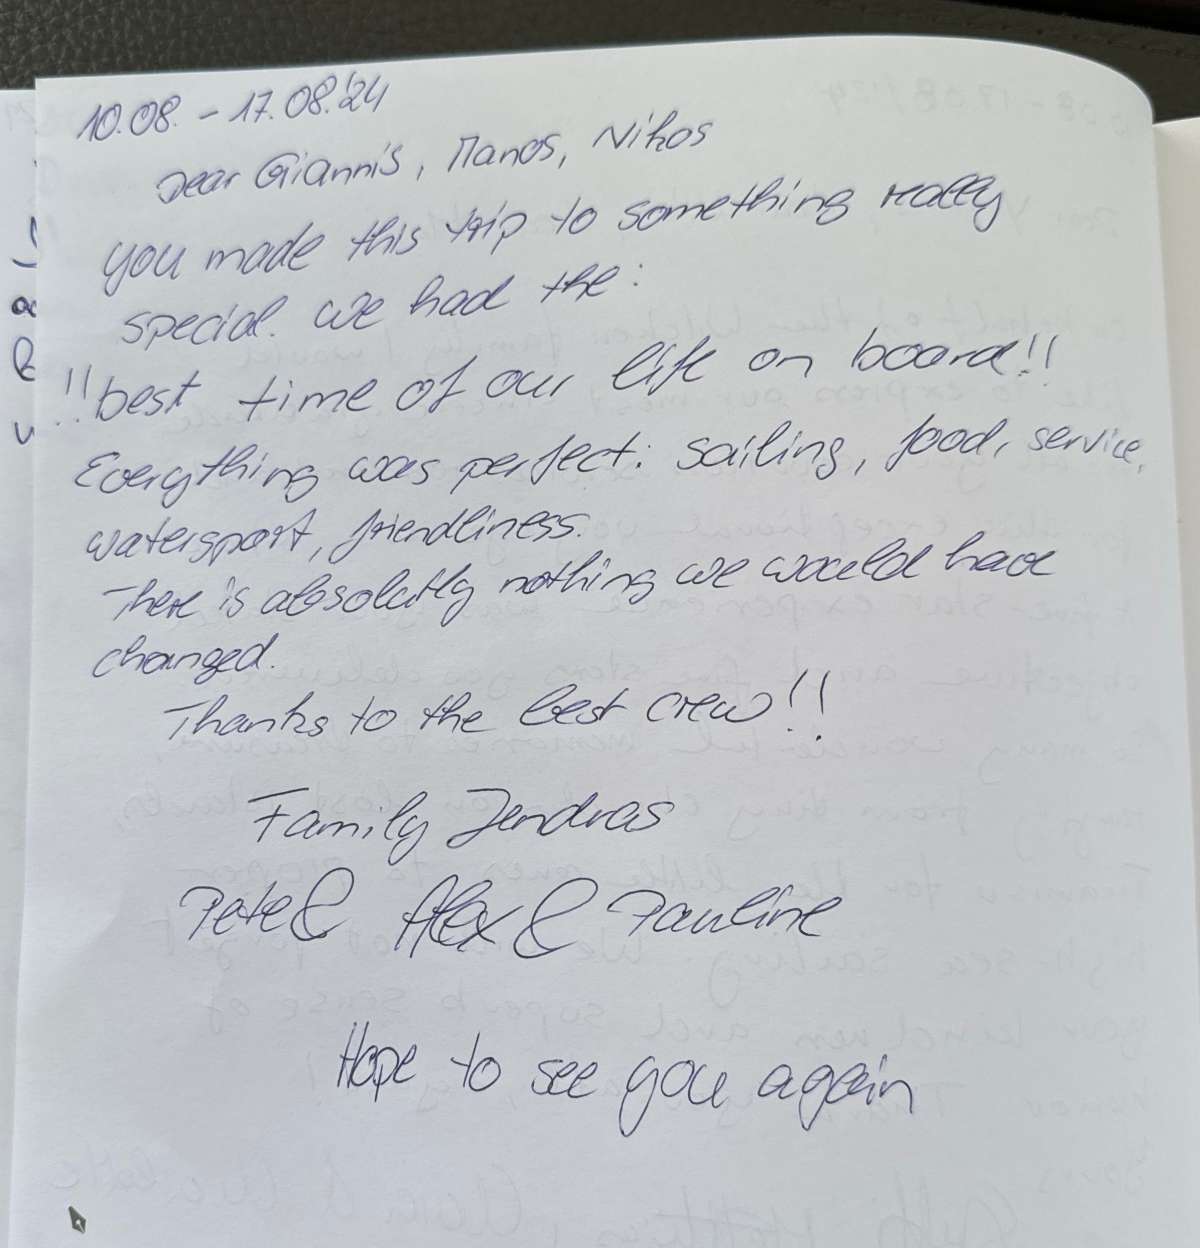 10.08. - 17.08.'24
Dear Giannis, Manos, Nikos
you made this trip to something really
special. We had the:
!!best time of our life on board!!
Everything was perfect: sailing, food, service,
watersport, friendliness.
There is absolutly nothing we would have
changed.
Thanks to the best crew!!
Family Jendras
Pete & Alex & Pauline
Hope to see you again